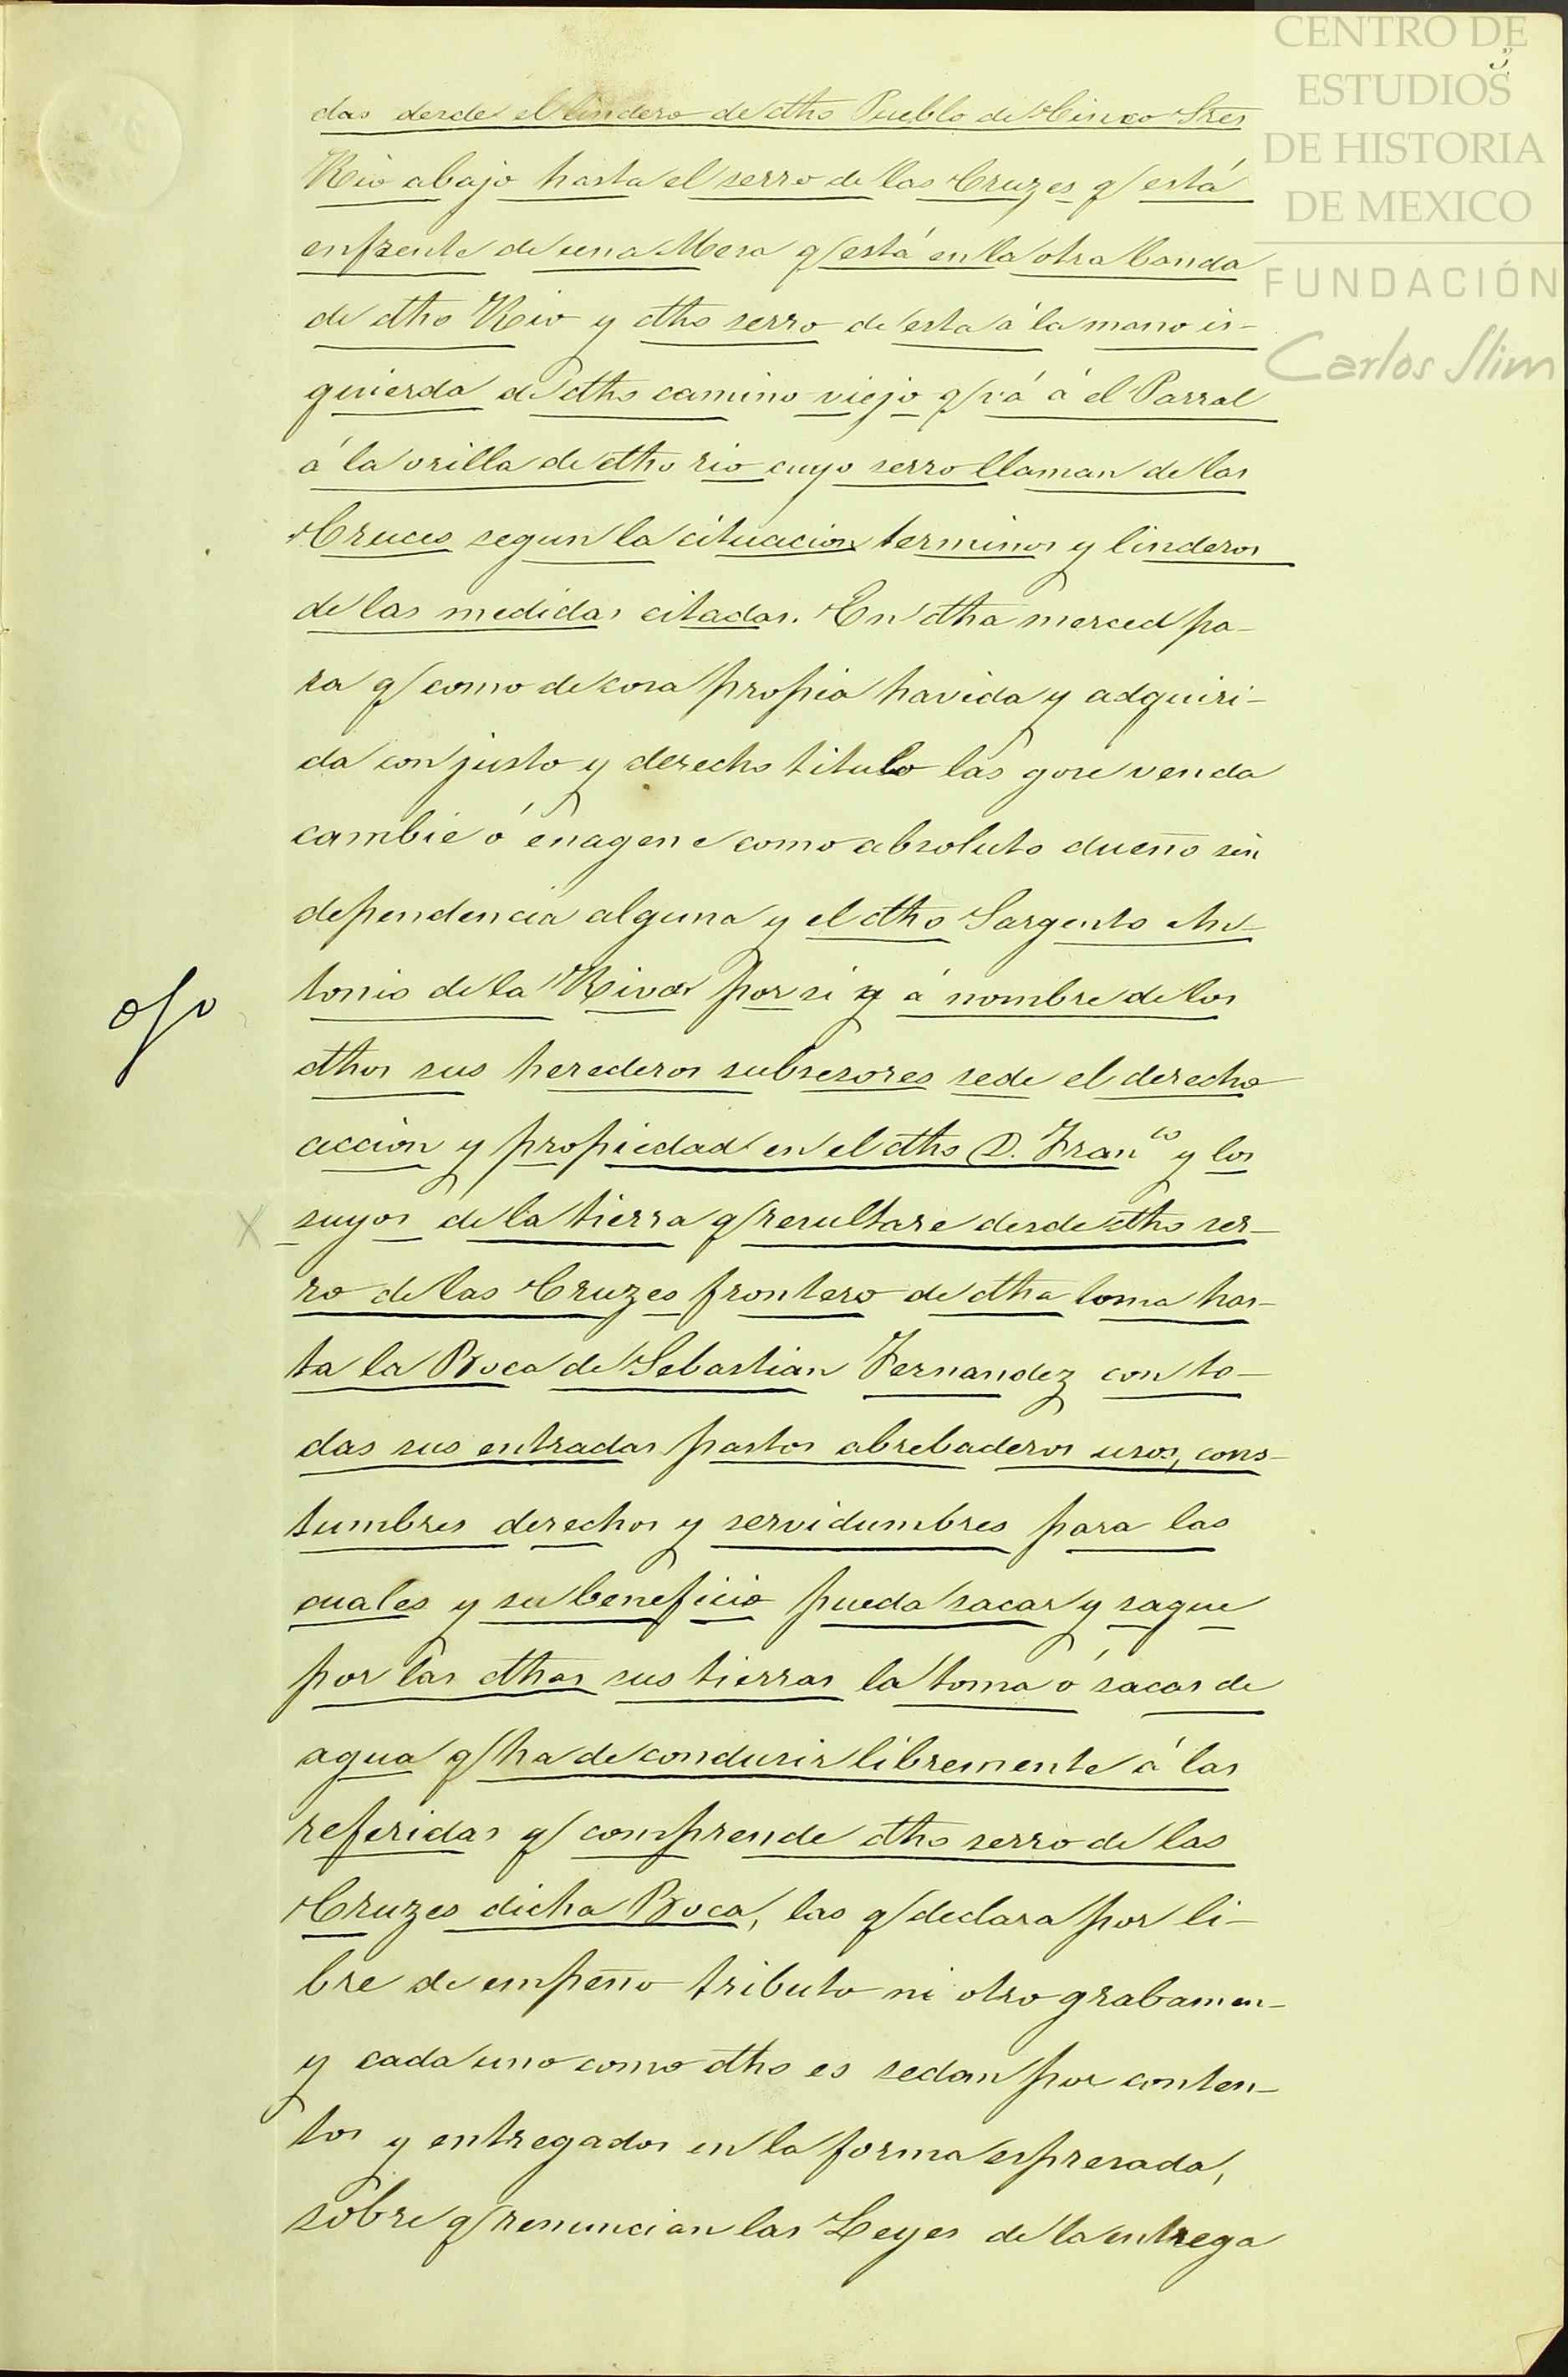 CENTRO DE
ESTUDIOS
DE HISTORIA
DE MEXICO
FUNDACIÓN
Carlos Slim
das desde el lindero de dho Pueblo de Cinco Sres
Rio abajo hasta el serro de las Cruzes q/ está
enfrente de una Mesa q/ está en la otra banda
de dho Rio y dho serro de esta á la mano is-
quierda de dho camino viejo q/ vá á el Parral
á la orilla de dho rio cuyo serro llaman de las
Cruces segun la cituacion terminos y linderos
de las medidas citadas. En dha merced pa-
ra q/ como de cosa propia havida y adquiri-
da con justo y derecho titulo las gose venda
cambie ó enagene como absoluto dueño sin
dependencia alguna y el dho Sargento An-
tonio de la Riva por si y á nombre de los
ojo
dhos sus herederos subsesores sede el derecho
accion y propiedad en el dho D. Franco y los
X suyos de la tierra q/ resultare desde dho ser-
ro de las Cruzes frontero de dha loma has-
ta la Boca de Sebastian Fernandez con to-
das sus entradas pastos abrebaderos usos, cons-
tumbres derechos y servidumbres para las
cuales y su beneficio pueda sacar y saque
por las dhas sus tierras la toma ó sacas de
agua q/ ha de condusir libremente á las
referidas q/ comprende dho serro de las
Cruzes dicha Boca, las q/ declara por li-
bre de empeño tributo ni otro grabamen-
y cada uno como dho es sedan por conten-
tos y entregados en la forma espresada,
sobre q/ renuncian las Leyes de la entrega